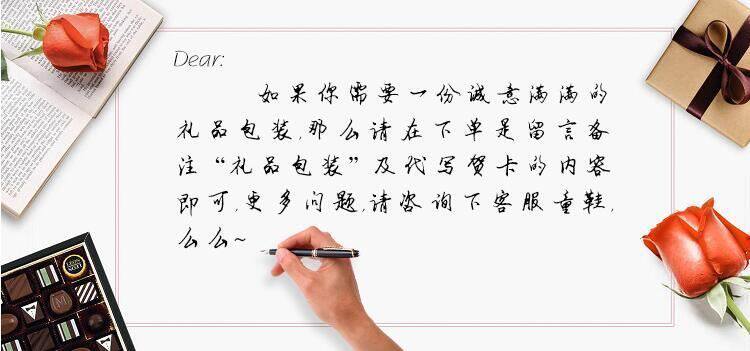 Dear:
如果你需要一份诚意满满的
礼品包装,那么请在下单是留言备
注“礼品包装”及代写贺卡的内容
即可,更多问题,请咨询下客服童鞋,
么么~